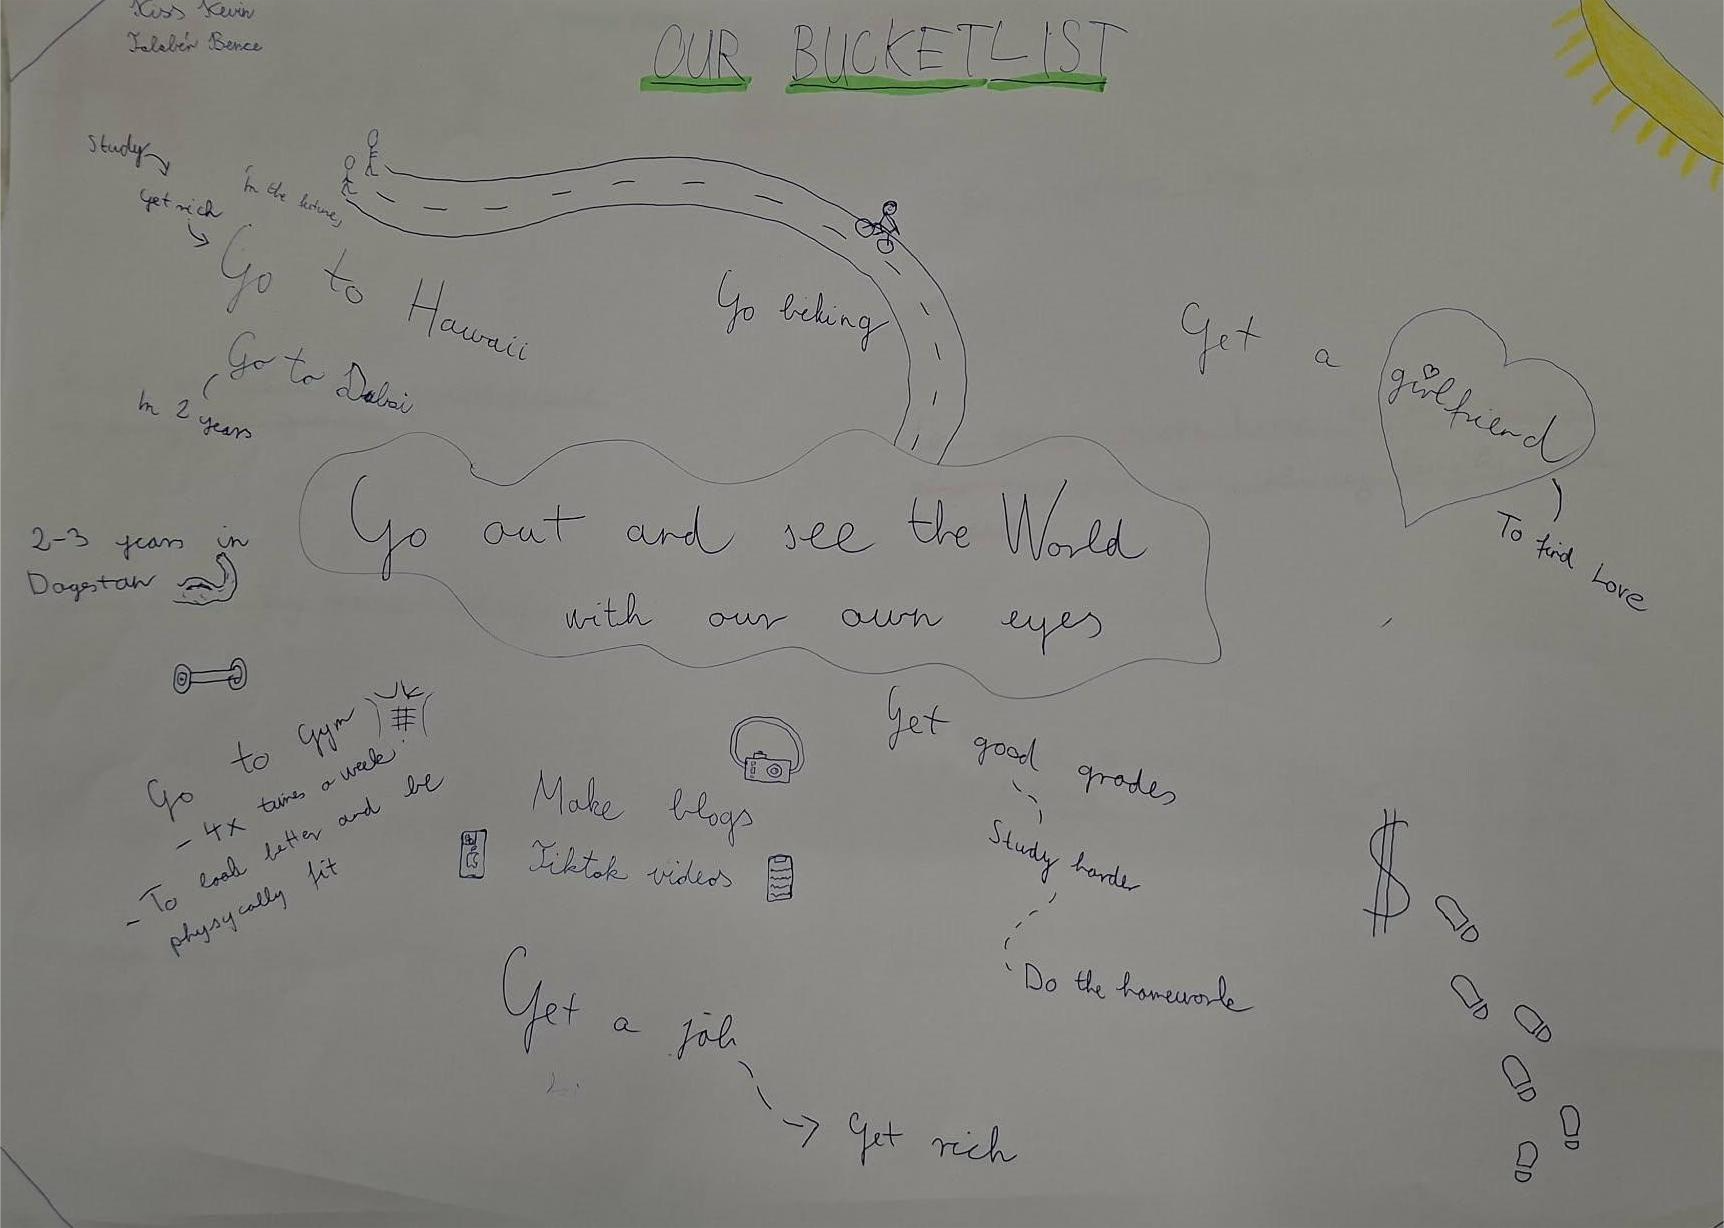 Kiss Kevin
Bence
OUR BUCKETLIST
Study
Get rich
In the future,
Go to Hawaii
Go to Dubai
In 2 years
Go biking
Get a girlfriend
To find Love
Go out and see the World
with our own eyes
2-3 years in
Dagestan
Go to Gym
- 4x times a week
- To look better and be
physycally fit
Make blogs
Tiktok videos
Get good grades
Study harder
Do the homework
$
Get a job
Get rich